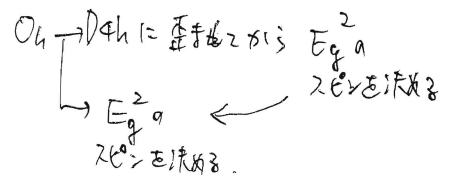 Oh → D4h に 歪ませてから Eg² の
スピンを決める
Eg² の
スピンを決める.